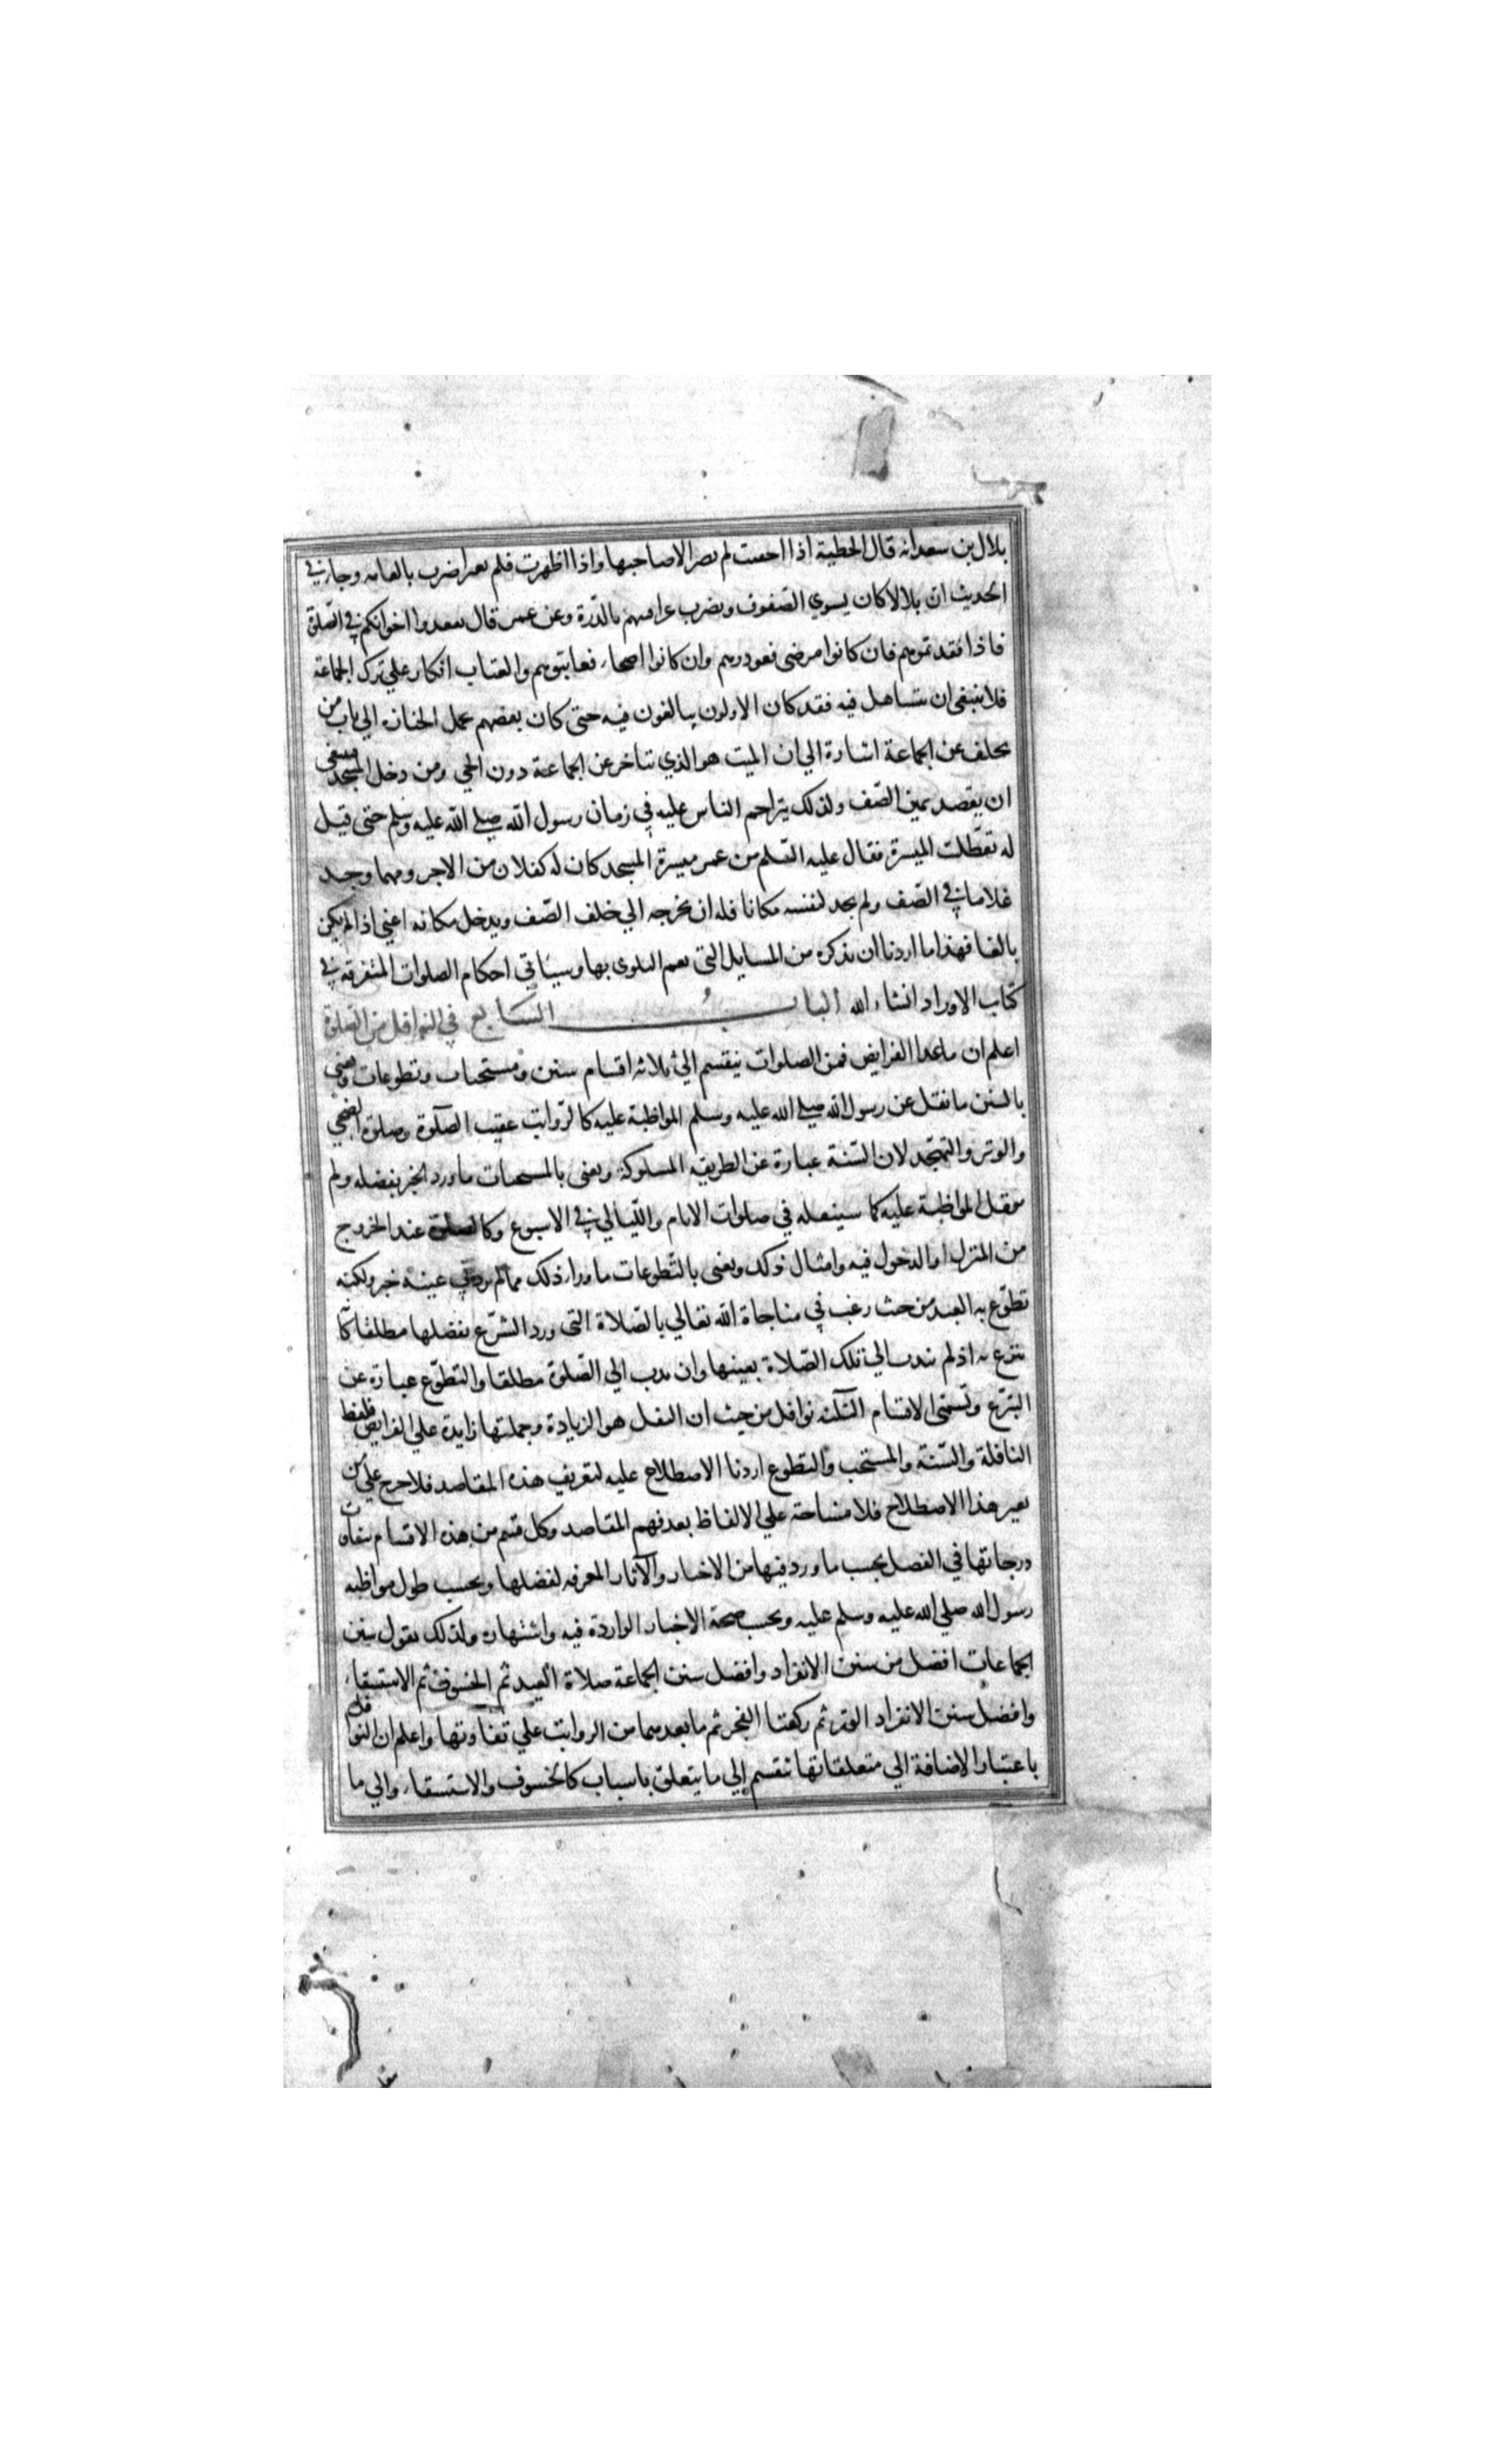 بلال بن سعد انه قال الخطية اذا اخفيت لم تضر الا صاحبها واذا اظهرت فلم تغير اضرت بالعامه وجاء في
الحديث ان بلالا كان يسوي الصفوف ويضرب عراقيبهم بالدرة وعن عمر قال تفقدوا اخوانكم في الصلوة
فاذا فقدتموهم فان كانوا مرضي فعودوهم وان كانوا اصحاء فعاتبوهم والعتاب انكار علي ترك الجماعة
فلا ينبغي ان يتساهل فيه فقد كان الاولون يبالغون فيه حتى كان بعضهم يحمل الجنازه الي باب من
تخلف عن الجماعة اشارة الي ان الميت هو الذي يتاخر عن الجماعة دون الحي ومن دخل المسجد ينبغي
ان يقصد يمين الصف ولذلك يتزاحم الناس عليه في زمان رسول الله صلي الله عليه وسلم حتى قيل
له تعطلت الميسرة فقال عليه السلم من عمر ميسرة المسجد كان له كفلان من الاجر ومهما وجد
غلاما في الصف ولم يجد لنفسه مكانا فله ان يخرجه الي خلف الصف ويدخل مكانه اعني اذا لم يكن
بالغا فهذا ما اردنا ان نذكره من المسايل التي تعم البلوى بها وسيأتي احكام الصلوات المتفرقه في
كتاب الاوراد انشاء الله الباب السابع في النوافل من الصلوة
اعلم ان ما عدا الفرايض فمن الصلوات ينقسم الي ثلاثه اقسام سنن ومستحبات وتطوعات ونعني
بالسنن ما نقل عن رسول الله صلي الله عليه وسلم المواظبة عليه كالرواتب عقيب الصلوة وصلوة الضحي
والوتر والتهجد لان السنة عبارة عن الطريقه المسلوكة ونعني بالمستحبات ما ورد الخبر بفضله ولم
ينقل المواظبة عليه كما سينصله في صلوات الايام والليالي في الاسبوع وكالصلوة عند الخروج
من المنزل او الدخول فيه وامثال ذلك ونعني بالتطوعات ما وراء ذلك مما لم يرد في عينه خبر ولكنه
تطوع به العبد من حيث رغب في مناجاة الله تعالي بالصلاة التي ورد الشرع بفضلها مطلقا كا
نتبرع به اذ لم يندب الي تلك الصلاة بعينها وان ندب الي الصلوة مطلقا والتطوع عبارة عن
التبرع وتسمى الاقسام الثلثه نوافل من حيث ان النفل هو الزيادة وجملتها زايدة علي الفرايض فلفظ
النافلة والسنة والمستحب والتطوع اردنا الاصطلاح عليه لتعريف هذه المقاصد فلا حرج علي من
يغير هذا الاصطلاح فلا مشاحة علي الالفاظ بعد فهم المقاصد وكل قسم من هذه الاقسام يتفاوت
درجاتها في الفضل بحسب ما ورد فيها من الاخبار والآثار المعرفه لفضلها وبحسب طول مواظبه
رسول الله صلي الله عليه وسلم عليه وبحسب صحة الاخبار الواردة فيه واشتهاره ولذلك نقول سنن
الجماعات افضل من سنن الانفراد وافضل سنن الجماعة صلاة العيد ثم الخسوف ثم الاستسقاء
وافضل سنن الانفراد الوتر ثم ركعتا الفجر ثم ما بعدهما من الرواتب علي تفاوتها واعلم ان النوافل
باعتبار الاضافة الي متعلقاتها تنقسم الي ما يتعلق باسباب كالخسوف والاستسقاء والي ما